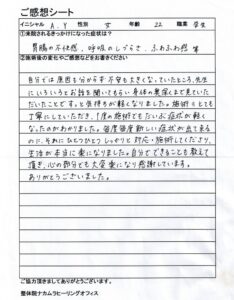 ご感想シート
イニシャル A.Y 性別 女 年齢 22 職業 学生
①来院されるきっかけになった症状は?
胃腸の不快感、呼吸のしづらさ、ふわふわ感 等
②施術後の変化やご感想などをお書きください
自分では原因も分からず不安も大きくなっていたところ、先生
にいろいろとお話を聞いてもらい身体の裏深くまで見ていた
だいたことで、すっと気持ちが軽くなりました。施術はとても
丁寧にしていただき、1度の施術でもだいぶ症状が軽く
なったのがわかりました。毎度毎度新しい症状が出て来る
のに、それにひとつひとつしっかりと対応・施術してくださり、
生活が本当に楽になりました。自分でできることも教えて
頂き、心の部分でも大変楽になり感謝しています。
ありがとうございました。
ご協力頂きましてありがとうございます。
整体院ナカムラヒーリングオフィス